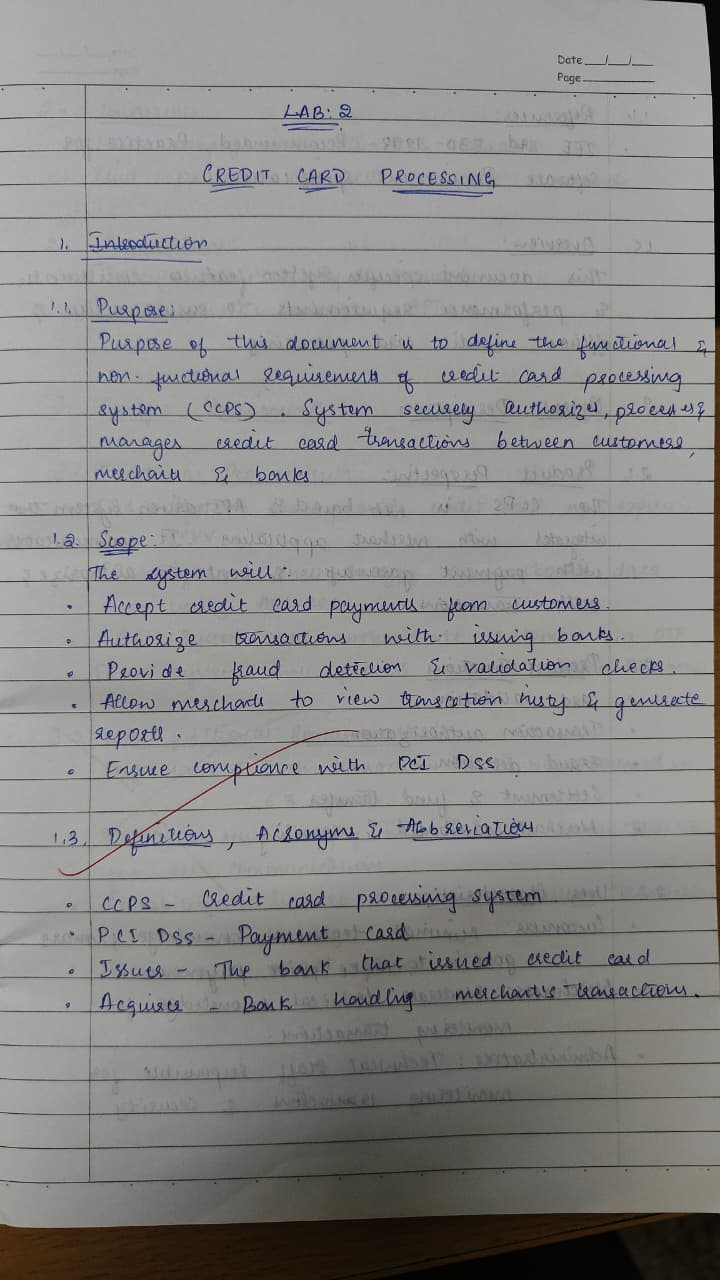 Date __/__/__
Page
LAB: 2
CREDIT CARD PROCESSING
1. Introduction
1.1. Purpose:
Purpose of this document is to define the functional &
non-functional requirements of credit card processing
system (CCPS). System securely authorizes, processes &
manages credit card transactions between customers,
merchants & banks
1.2. Scope:
The system will:
• Accept credit card payments from customers.
• Authorize transactions with issuing banks.
• Provide fraud detection & validation checks.
• Allow merchants to view transcation histy & generate
reports.
• Ensure compliance with PCI DSS
1.3. Definitions, Acronyms & Abbreviations
• CCPS - Credit card processing system
• PCI DSS - Payment card
• Issuer - The bank that issued credit card
• Acquirer - Bank handling merchant's transactions.